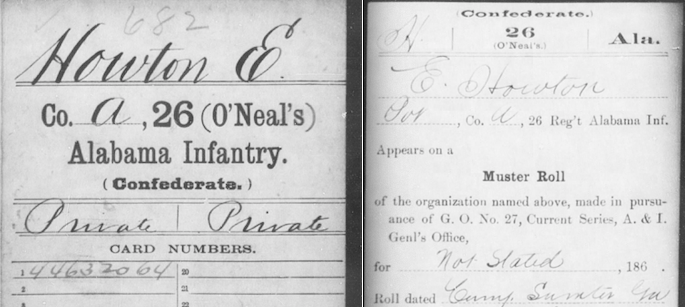 682
Howton E.
Co. A, 26 (O'Neal's)
Alabama Infantry.
(Confederate.)
Private | Private
CARD NUMBERS.
1 44632064 20
2 21
3 22
(Confederate.)
H 26 Ala.
(O'Neal's.)
E. Howton
Pvt, Co. A, 26 Reg't Alabama Inf.
Appears on a
Muster Roll
of the organization named above, made in pursu-
ance of G. O. No. 27, Current Series, A. & I.
Genl's Office,
for Not Stated, 186 .
Roll dated Camp Sumter Ga